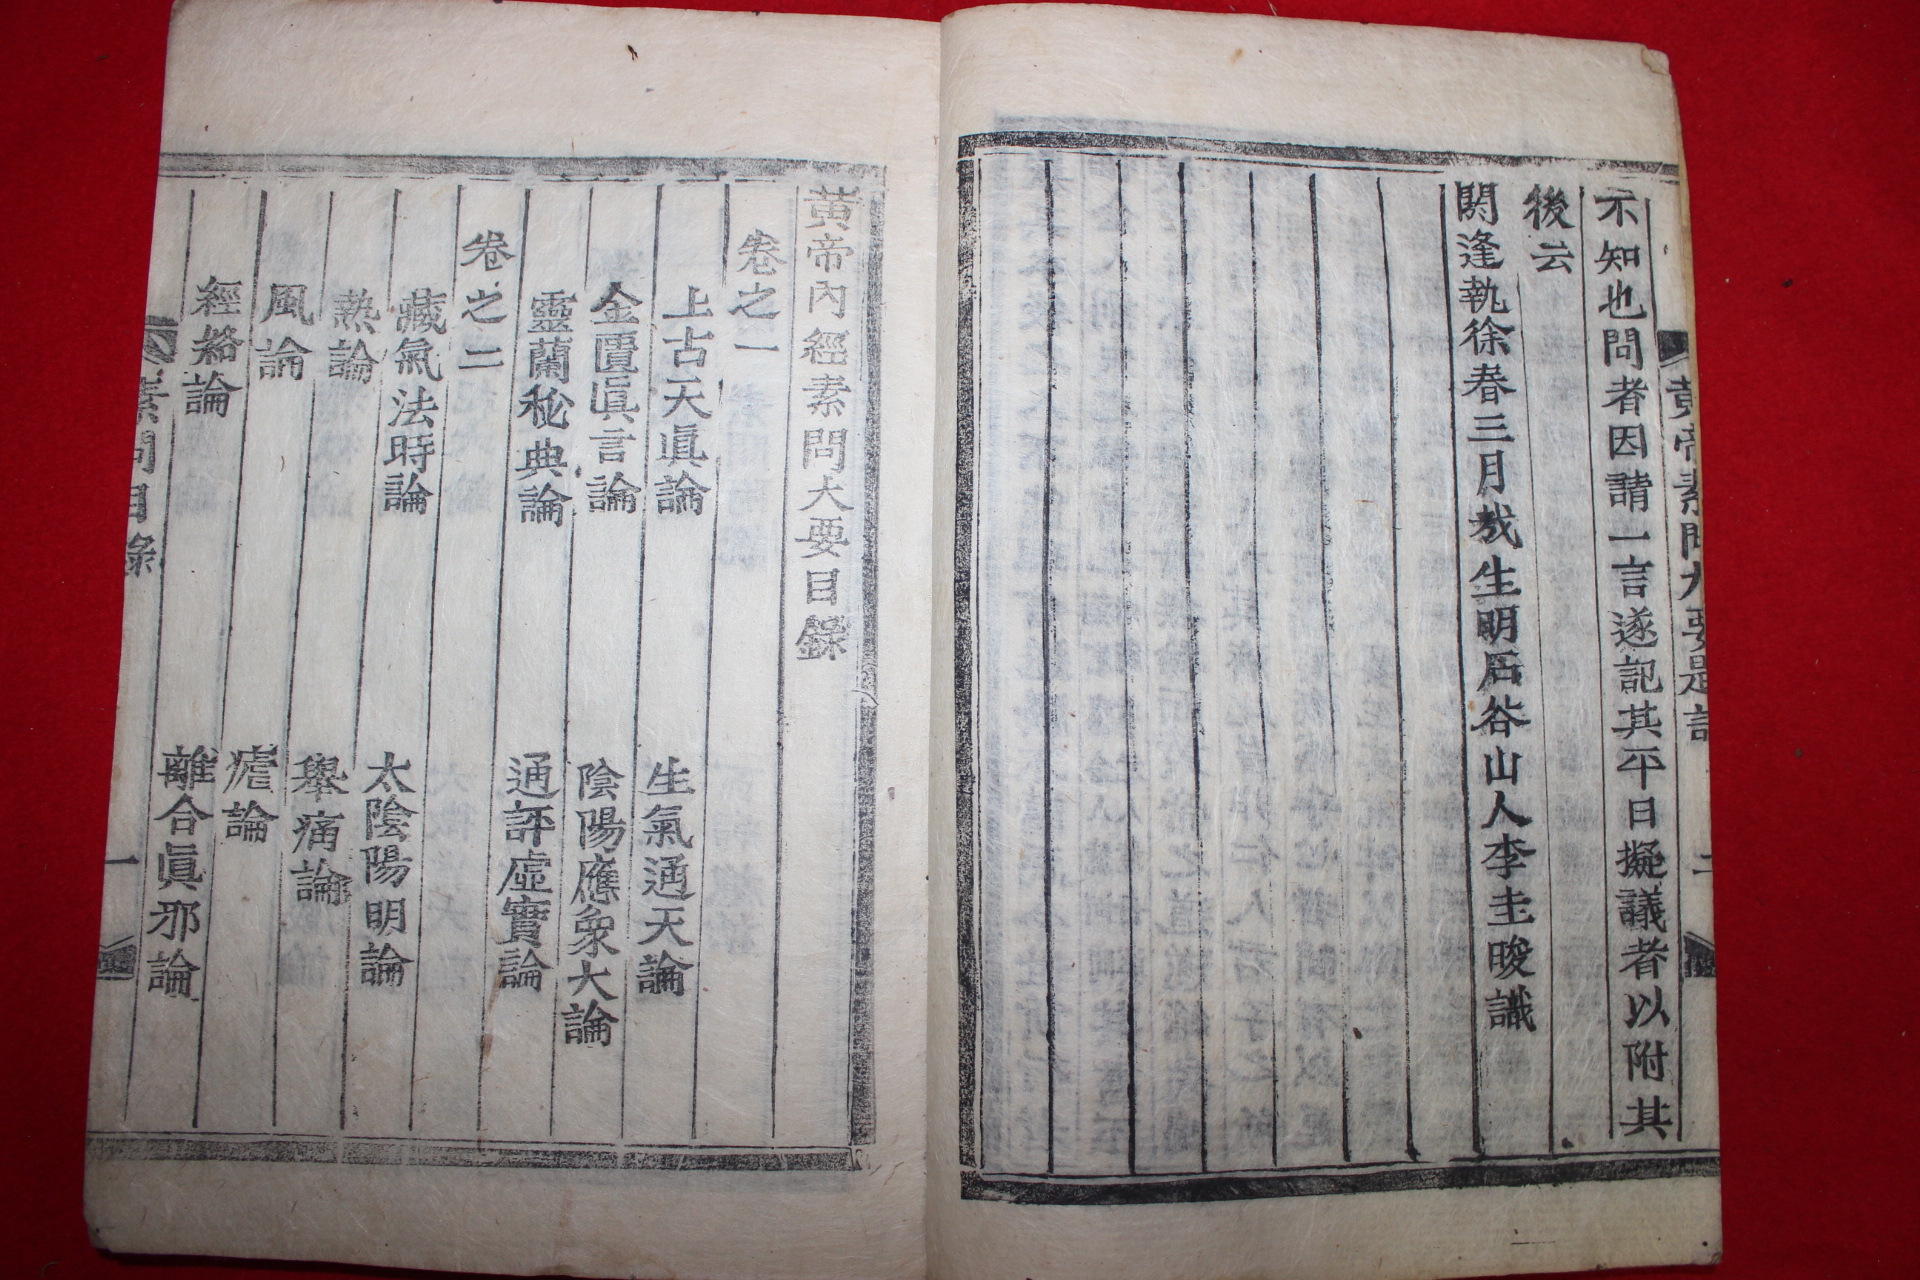 黃帝素問大要是
二
不知也問者因請一言遂記其平日擬議者以附其
後云
閼逢執徐春三月哉生明石谷山人李圭晙識
黃帝內經素問大要目錄
卷之一
上古天眞論 生氣通天論
金匱眞言論 陰陽應象大論
靈蘭秘典論 通評虛實論
卷之二
藏氣法時論 太陰陽明論
熱論 擧痛論
風論 瘧論
經絡論 離合眞邪論
素問目錄
一